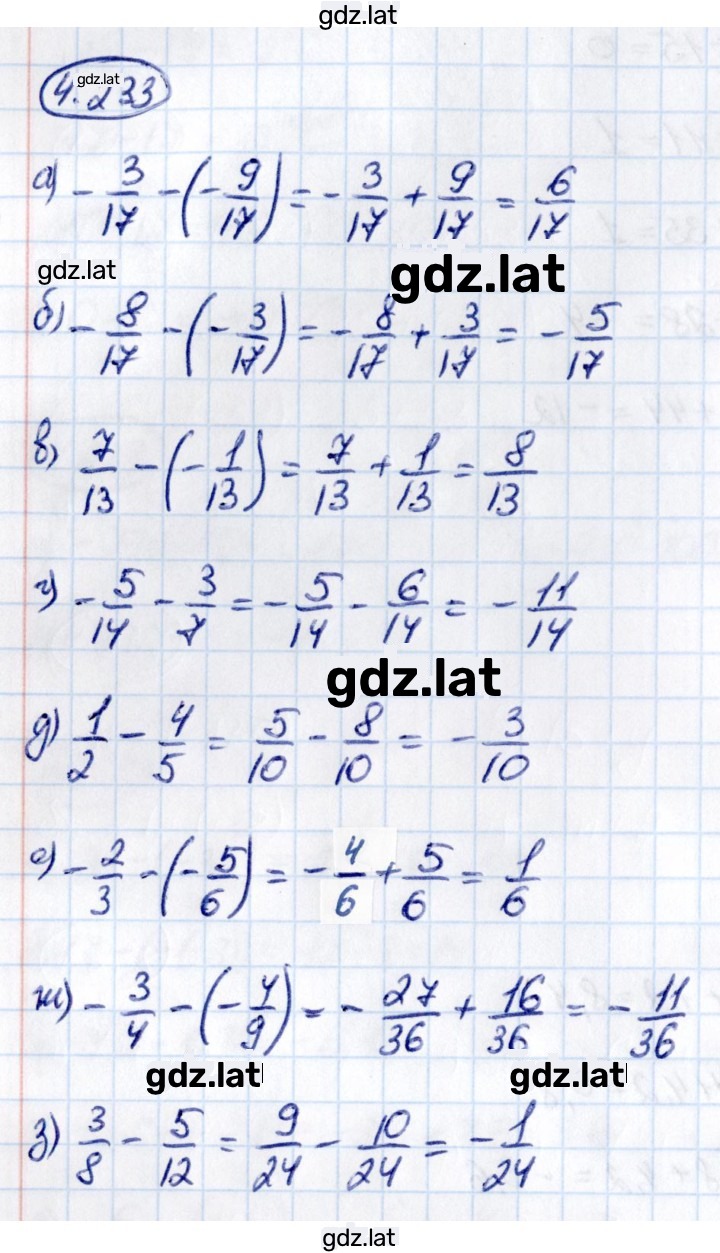 gdz.lat
gdz.lat
4.233
а) - 3/17 - (- 9/17) = - 3/17 + 9/17 = 6/17
gdz.lat
gdz.lat
б) - 8/17 - (- 3/17) = - 8/17 + 3/17 = - 5/17
в) 7/13 - (- 1/13) = 7/13 + 1/13 = 8/13
г) - 5/14 - 3/7 = - 5/14 - 6/14 = - 11/14
gdz.lat
д) 1/2 - 4/5 = 5/10 - 8/10 = - 3/10
е) - 2/3 - (- 5/6) = - 4/6 + 5/6 = 1/6
ж) - 3/4 - (- 4/9) = - 27/36 + 16/36 = - 11/36
gdz.lat
gdz.lat
з) 3/8 - 5/12 = 9/24 - 10/24 = - 1/24
gdz.lat